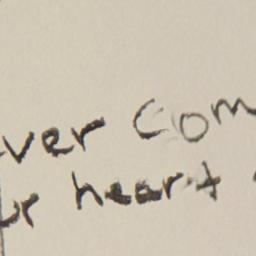 ver com
ur heart